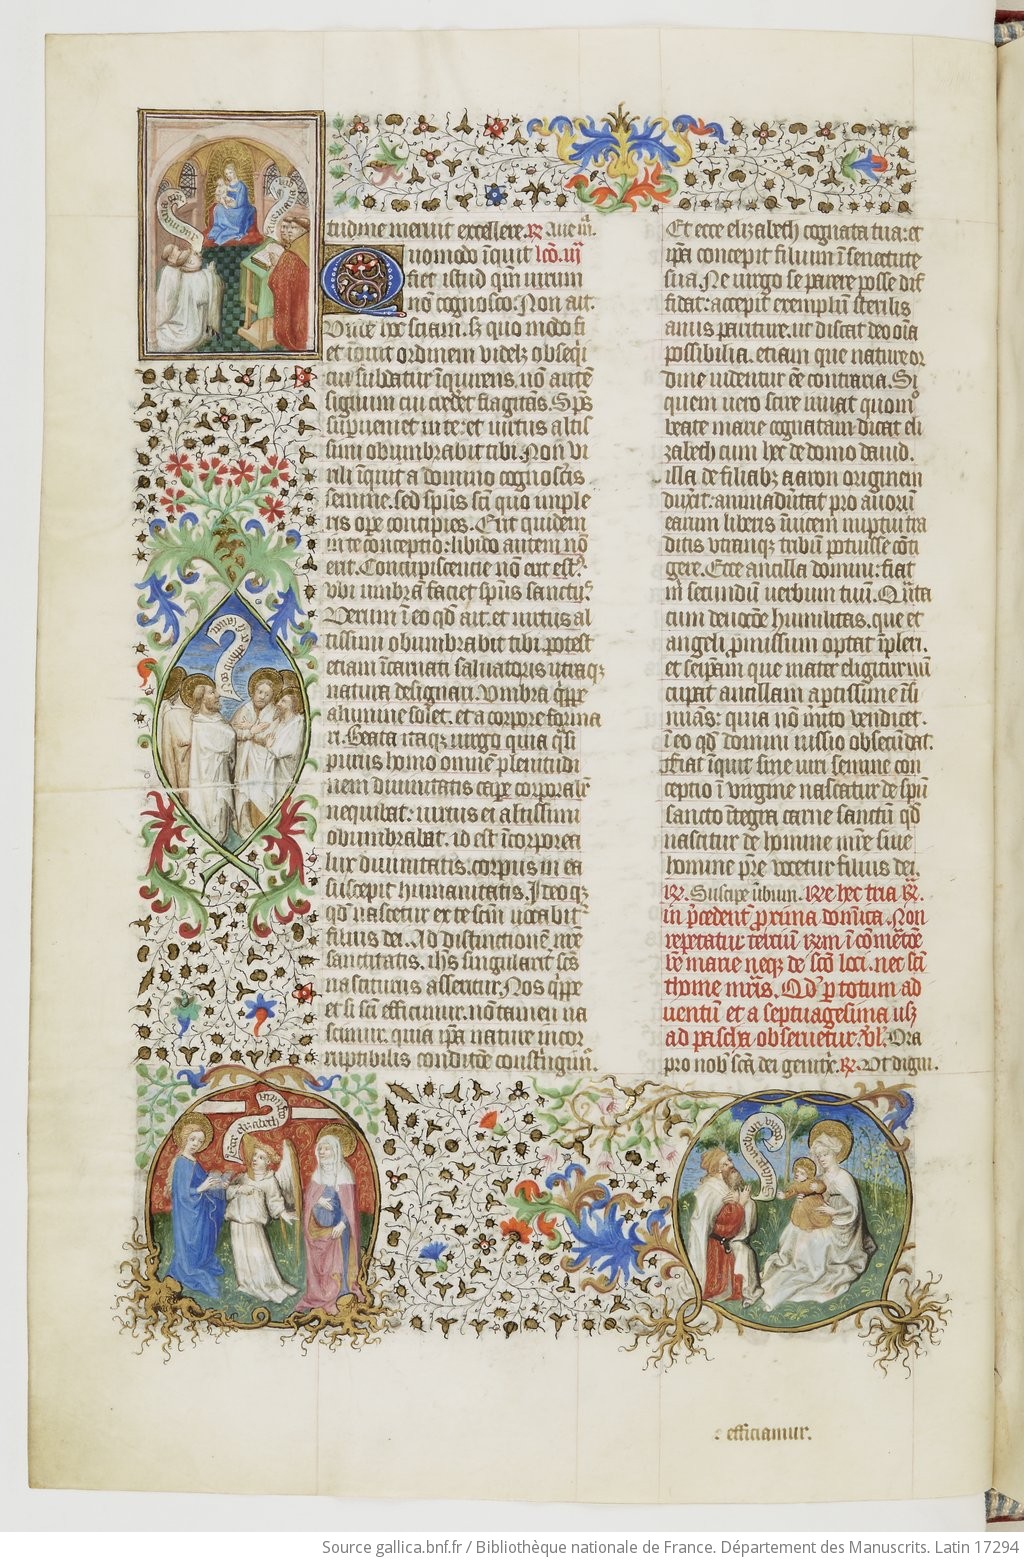 tudine meruit excellere. ℟ Aue mᵃ.
Quomodo īquit lcō. iij
fiet istud qm̄ uirum
nō cognosco. Non ait.
et īnuit ordinem
signum cui credet flagitās. Spc̄
supueniet in te: et uirtus altis
simi obumbrabit tibi. Non vi
rili īquit a domino cognoscis
semine. sed spūs sc̄i quo imple
ris ope concipies. Erit quidem
in te conceptio: libido autem nō
erit. Concupiscencie nō erit est⁹.
vbi umbrā faciet spūs sanctꝰ.
Verum ī eo qd̄ ait. et uirtus al
tissimi obumbrabit tibi. potest
etiam īcarnati saluatoris utraqꝫ
natura designari. Vmbra q̄ppe
a lumine solet. et a corpore forma
ri. Beata itaqꝫ uirgo quia q̄si
purus homo omnem plenitudi
nem diuinitatis cape corporalr̄
nequibat: uirtus ei altissimi
obumbrabat. id est īcorporea
lux diuinitatis: corpus in ea
suscepit humanitatis. Ideoqꝫ
qd̄ nascetur ex te scm̄ uocabit᷑
filius dei. Ad distinctionē nr̄e
sanctitatis. ihs̄ singularit᷑ scs̄
nasciturus asseritur. Nos q̄ppe
et si sc̄i efficimur. nō tamen na
scimur. quia ip̄a nature incor
ruptibilis conditōe constringim̄.
Et ecce elizabeth cognata tua: et
ip̄a concepit filium ī senectute
sua. Ne uirgo se parere posse dif
fidat: accepit exemplū sterilis
anus pariture. ut discat deo oīa
possibilia. etiam que nature or
dine uidentur eē contraria. Si
quem uero scire iuuat quomº
beate marie cognatam dicat eli
zabeth cum hec de domo dauid.
illa de filiabꝫ aaron originem
duxit: animaduertat pro auorū
earum liberis īuicem nuptui tra
ditis vtranqꝫ tribū potuisse cōti
gere. Ecce ancilla domini: fiat
m̄ secundū uerbum tuū. Quāta
cum deuocōe humilitas. que et
angeli p̄missum optat īpleri.
et seipam que mater eligitur nū
cupat ancillam aptissime īsi
nuās: quia nō mīto vendicet.
ī eo qd̄ domini iussio obsecūdat.
Fiat īquit sine uiri semine con
ceptio ī virgine nascatur de spū
sancto ītegra carne sanctū qd̄
nascitur de homine mr̄e siue
homine pr̄e vocetur filius dei.
℟. Suscipe ūbum. ℟e hec tria ℟.
in p̄cedent᷑ p̄rima dom̄ica. Non
repetatur terciū ℟m ī com̄ēōe
be marie neqꝫ de sco loci. nec sc̄i
thome mr̄is. Qd̄ p totum ad
uentū et a septuagesima usqꝫ
ad pascha obseruetur. v̄sꝰ. Ora
pro nobꝰ sc̄a dei genit᷑x. ℟. Vt digni
: efficiamur.
Ecce elizabeth
Suscipe verbum virgo
Source gallica.bnf.fr / Bibliothèque nationale de France. Département des Manuscrits. Latin 17294